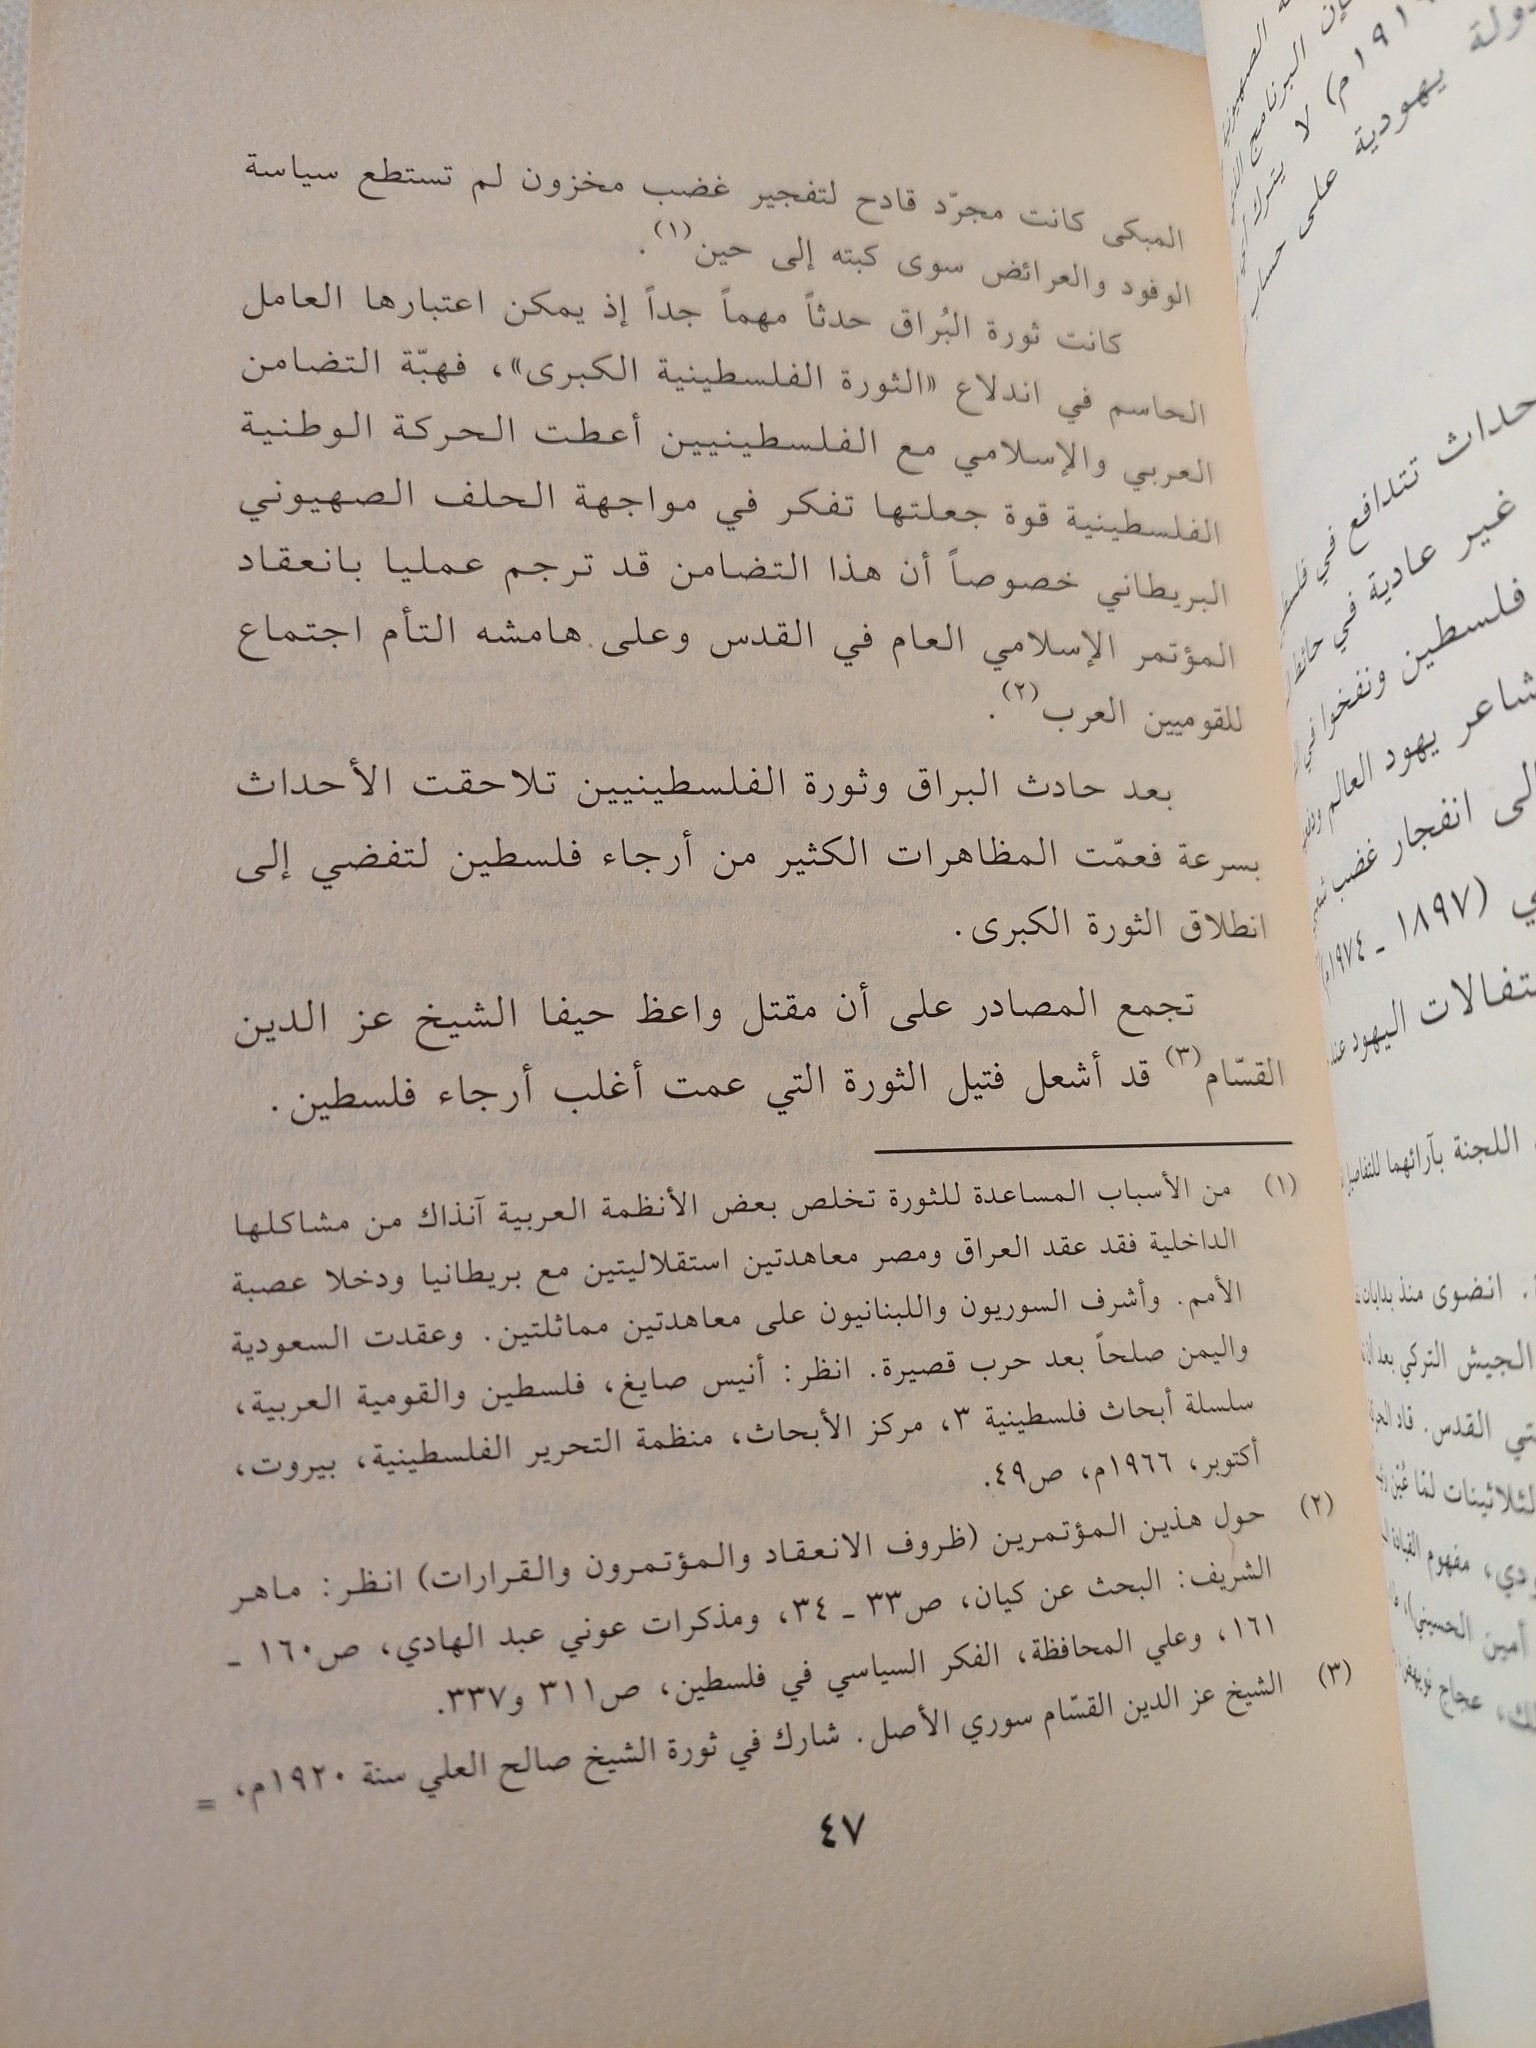 المبكى كانت مجرّد قادح لتفجير غضب مخزون لم تستطع سياسة
الوفود والعرائض سوى كبته إلى حين(١).
كانت ثورة البُراق حدثاً مهماً جداً إذ يمكن اعتبارها العامل
الحاسم في اندلاع «الثورة الفلسطينية الكبرى»، فهبّة التضامن
العربي والإسلامي مع الفلسطينيين أعطت الحركة الوطنية
الفلسطينية قوة جعلتها تفكر في مواجهة الحلف الصهيوني
البريطاني خصوصاً أن هذا التضامن قد ترجم عمليا بانعقاد
المؤتمر الإسلامي العام في القدس وعلى هامشه التأم اجتماع
للقوميين العرب(٢).
بعد حادث البراق وثورة الفلسطينيين تلاحقت الأحداث
بسرعة فعمّت المظاهرات الكثير من أرجاء فلسطين لتفضي إلى
انطلاق الثورة الكبرى.
تجمع المصادر على أن مقتل واعظ حيفا الشيخ عز الدين
القسّام(٣) قد أشعل فتيل الثورة التي عمت أغلب أرجاء فلسطين.
(١) من الأسباب المساعدة للثورة تخلص بعض الأنظمة العربية آنذاك من مشاكلها
الداخلية فقد عقد العراق ومصر معاهدتين استقلاليتين مع بريطانيا ودخلا عصبة
الأمم. وأشرف السوريون واللبنانيون على معاهدتين مماثلتين. وعقدت السعودية
واليمن صلحاً بعد حرب قصيرة. انظر: أنيس صايغ، فلسطين والقومية العربية،
سلسلة أبحاث فلسطينية ٣، مركز الأبحاث، منظمة التحرير الفلسطينية، بيروت،
أكتوبر، ١٩٦٦م، ص٤٩.
(٢) حول هذين المؤتمرين (ظروف الانعقاد والمؤتمرون والقرارات) انظر: ماهر
الشريف: البحث عن كيان، ص٣٣ ـ ٣٤، ومذكرات عوني عبد الهادي، ص١٦٠ ـ
١٦١، وعلي المحافظة، الفكر السياسي في فلسطين، ص٣١١ و٣٣٧.
(٣) الشيخ عز الدين القسّام سوري الأصل. شارك في ثورة الشيخ صالح العلي سنة ١٩٢٠م، =
٤٧
البرنامج
لا يترك
دولة يهودية على حساب
تتدافع في
غير عادية في
فلسطين ونفخوا في
يهود العالم
انفجار غضب
(١٨٩٧ ـ ١٩٧٤م
اليهود
اللجنة بآرائهما
انضوى منذ بدايات
الجيش التركي بعد
القدس.
مفهوم
أمين